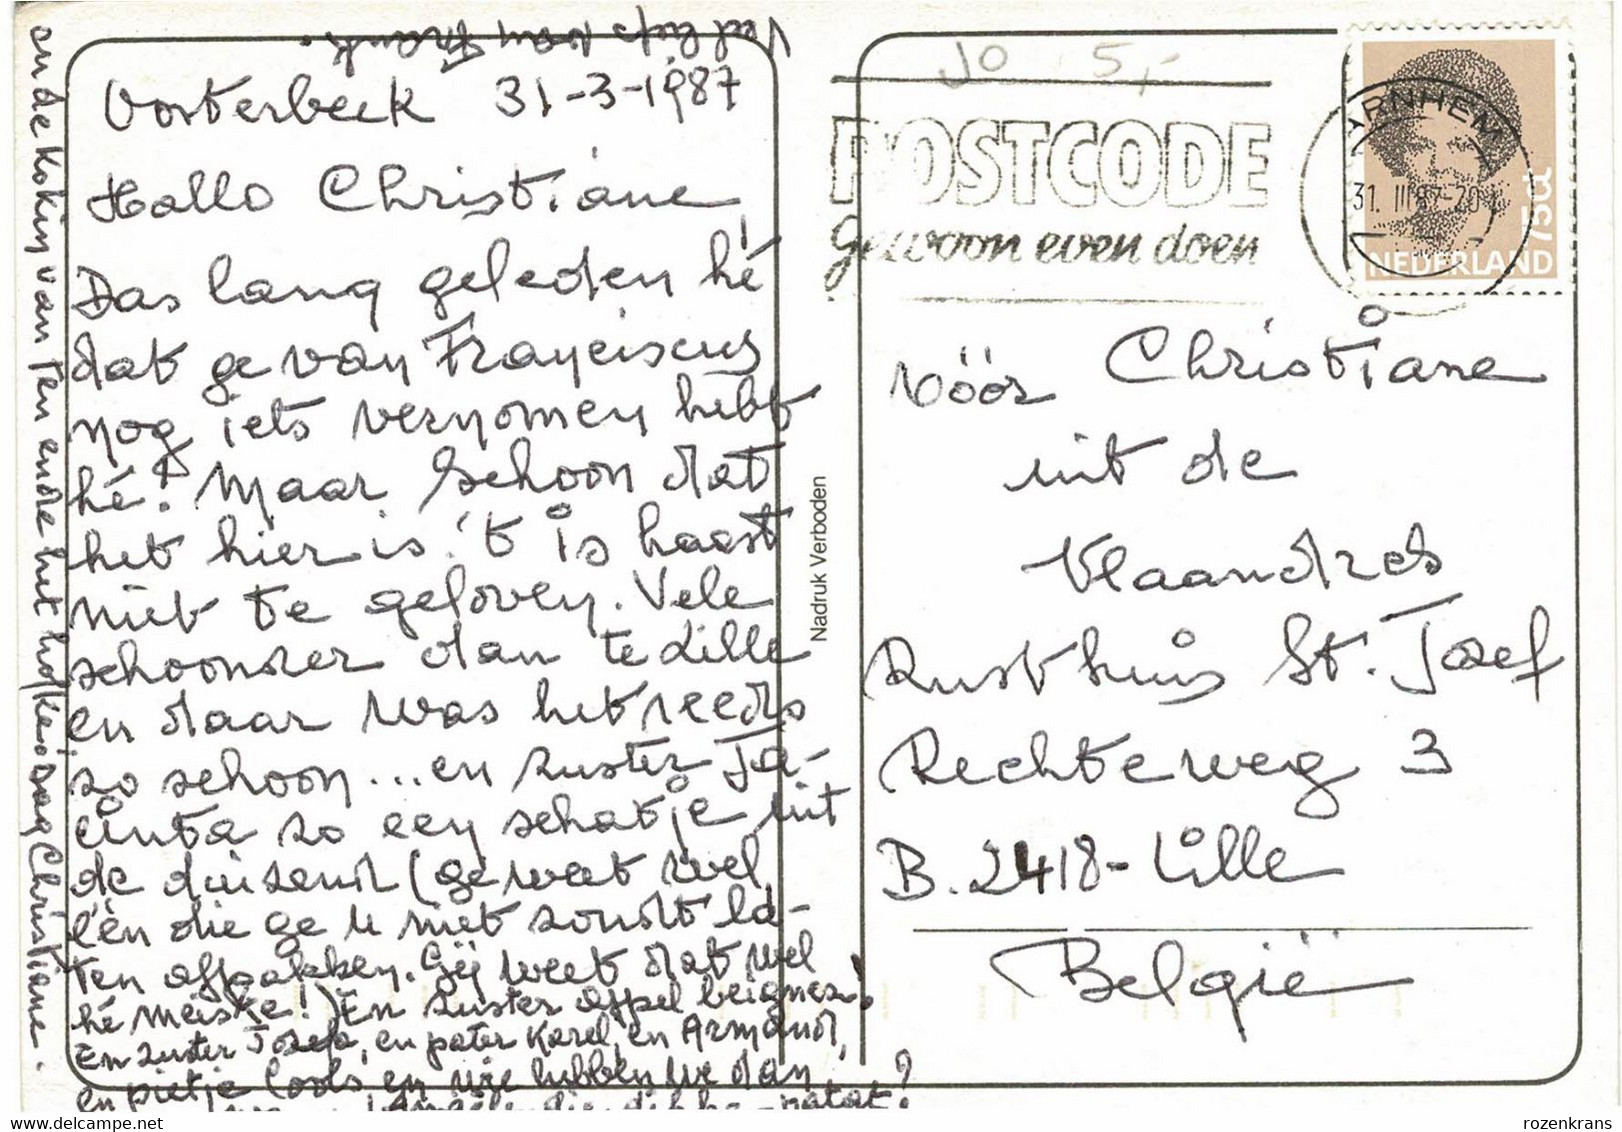 Oosterbeek 31-3-1987
Hallo Christiane,
Das lang geleden hé
dat ge van Franciscus
nog iets vernomen hebt
hé! Maar schoon dat
het hier is! 't is haast
niet te geloven. Vele
schoonder dan te Lille
en daar was het reeds
zo schoon... en zuster Ja-
cinta zo een schatje uit
de duizend (ge weet wel,
één die ge u niet zoudt la-
ten afpakken. Gij weet dat wel
hé meiske!) En zuster appel beignez!
En zuster Jozefa, en pater Karel, en Armand,
en pietje Cools en wie hebben we dan
en de kokin van ten ende het hofke: dag Christiane.
Veel liefs van Frank.
Nadruk Verboden
JO 5,-
POSTCODE
gewoon even doen
ARNHEM
31. III 87-20
75ct
NEDERLAND
vóór Christiane
uit de
Vlaanders
Rusthuis St. Jozef
Rechteweg 3
B. 2418-Lille
België
delcampe.net
rozenkrans